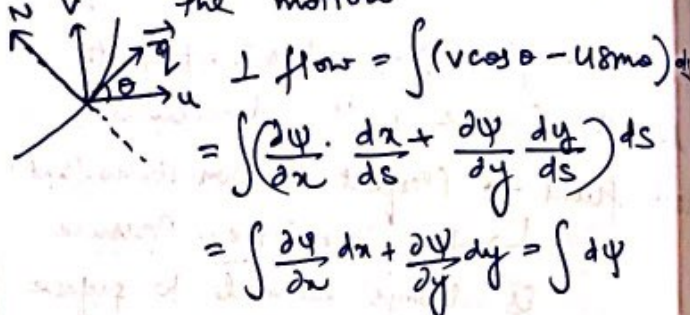 the motion
2 v q⃗ ⊥ flow = ∫(v cos θ - u sin θ) ds
θ u
= ∫(∂ψ/∂x · dx/ds + ∂ψ/∂y dy/ds) ds
= ∫ ∂ψ/∂x dx + ∂ψ/∂y dy = ∫ dψ